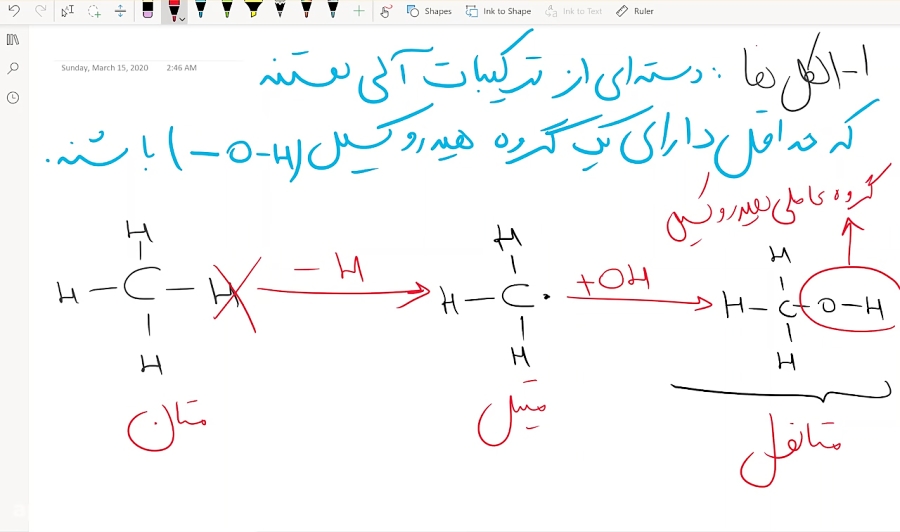 Shapes Ink to Shape Ink to Text Ruler
Sunday, March 15, 2020 2:46 AM
۱- الکل ها : دسته ای از ترکیبات آلی هستند
که حداقل دارای یک گروه هیدروکسیل (-O-H) باشند.
گروه عاملی هیدروکسیل
H
H-C-H
H
-H
H
H-C·
H
+OH
H
H-C-O-H
H
متان
متیل
متانول